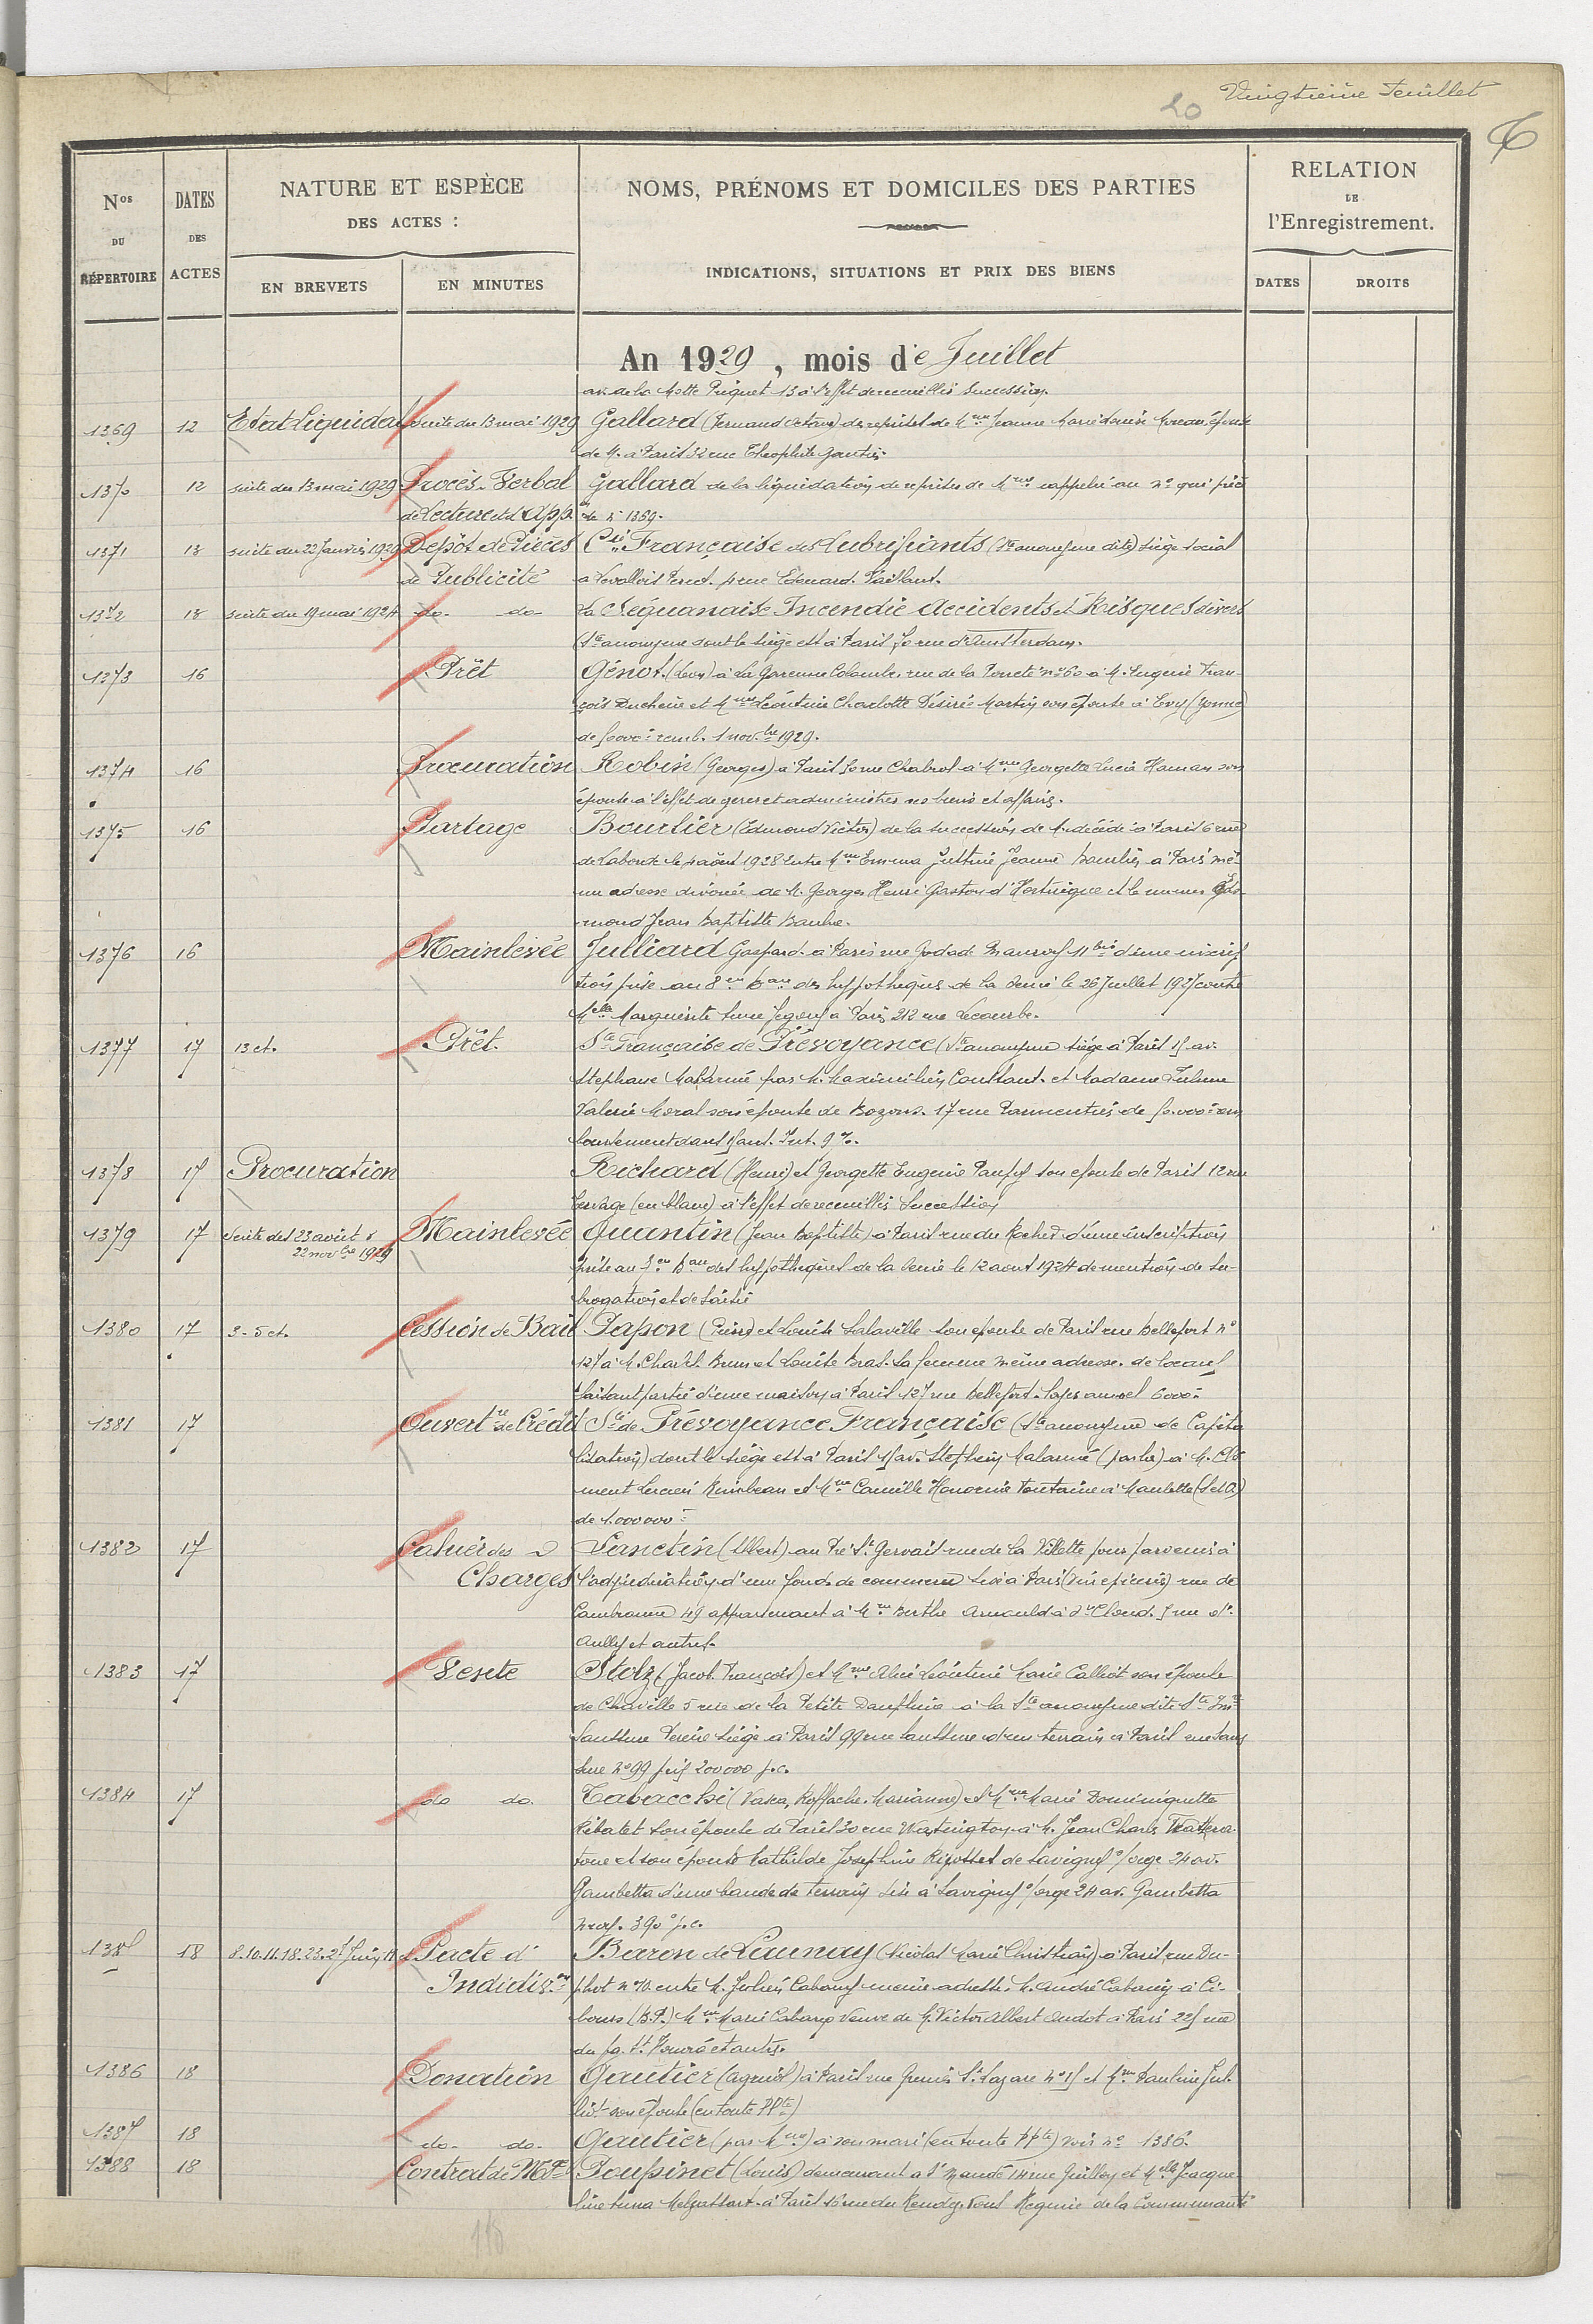 Vingtième feuillet
20
Nos DU RÉPERTOIRE
DATES DES ACTES
NATURE ET ESPÈCE DES ACTES :
EN BREVETS
EN MINUTES
NOMS, PRÉNOMS ET DOMICILES DES PARTIES
INDICATIONS, SITUATIONS ET PRIX DES BIENS
RELATION DE l'Enregistrement.
DATES
DROITS
An 1929, mois de Juillet
av. de la Motte Picquet 13 à l'effet de recueillir succession
1369 12 Etat Liquidat suite du 13 mai 1929 Gallard (Fernand Octave) des reprises de Mme Jeanne Marie Louise Moreau épouse
de M. à Paris 32 rue Theophile Gautier
1370 12 suite du 13 mai 1929 Procès-Verbal Gallard de la liquidation de reprises de Mme rappelée au no qui précè
de Lecture et d'App. de no 1369.
1371 13 suite du 22 Janvier 1929 Dépôt de Pièces Cie Française des Lubrifiants (Sté anonyme dite) siège social
de Publicité à Levallois Perret 4 rue Edouard Vaillant.
1372 18 suite du 19 mai 1924 do- do- La Séquanaise Incendie Accidents et Risques divers
(Sté anonyme dont le siège est à Paris rue d'Amsterdam.
1373 16 Prêt Génot (Léon) à La Garenne Colombes rue de la no 60 à M. Eugène Fran-
çois Duchesne et Mme Léontine Charlotte Désirée Martin son épouse à Evry (Yonne)
de remb. 1 novbre 1929.
1374 16 Procuration Robin (Georges) à Paris rue Chabrol à Mme Georgette Lucie Haman son
épouse à l'effet de gérer et administrer ses biens et affaires.
1375 16 Partage Bourlier (Edmond Victor) de la succession de M. décédé à Paris 6 rue
de Laborde le 4 août 1928 entre Mme Emma Jultine Jeanne Bourlier à Paris mê-
me adresse divorcée de M. Georges Henri Gaston d' et le mineur Ed-
mond Jean Baptiste
1376 16 Mainlevée Julliard Gaspard à Paris rue Godot de Mauroy 11 bis d'une inscrip
tion prise au 8me Bau des hypothèques de la Seine le 26 Juillet 1927 contre
Melle Marguerite à Paris 212 rue Lecourbe.
1377 17 13 ct. Prêt. Sté Française de Prévoyance (Sté anonyme siège à Paris 15 av.
Stephane Mallarmé par M. Maximilien Coultant et Madame
Valérie Moral son épouse de Bezons 17 rue Parmentier de 50.000 rem
boursement dans 15 ans. Int. 9 %.
1378 17 Procuration Richard (Henri) et Georgette Eugenie son épouse de Paris 12 rue
(en blanc) à l'effet de recueillir succession
1379 17 suite des 23 août & 22 novbre 1929 Mainlevée Quantin (Jean Baptiste) à Paris rue du Rocher d'une inscription
prise au Bau des hypothèques de la Seine le 12 août 1924 de mention de su-
brogation et de saisie
1380 17 3-5 ct. Cession de Bail Papon (Pierre) et Louise Lalaville son épouse de Paris rue Belleport no
127 à M. Charles Brun et Louise Bras. sa femme même adresse. de locaux
faisant partie d'une maison à Paris 127 rue Belleport. Loyer annuel 6000.
1381 17 Ouvertre de Crédit Sté de Prévoyance Française (Sté anonyme de Capita
lisation) dont le siège est à Paris 15 av. Stephen Malarmé (par la) à M. Clé
ment Lucien et Mme Camille Honorine Fontaine à Maulette (S et O)
de 1.000000.
1382 17 Cahier des Lanctin (Albert) au Pré St Gervais rue de la Villette pour parvenir à
Charges l'adjudication d'un fonds de commerce sis à Paris (vin épicerie) rue de
Cambronne 49 appartenant à Mme Berthe Arnauld à St Cloud 5 rue d'
et autres.
1383 17 Vente Stolz (Jacob François) et Mme Alice Léontine Marie Calliot son épouse
de Chaville 5 rue de la Petite Dauphine à la Sté anonyme dite Sté Imre
Saussure Pereire siège à Paris 99 rue Saussure d'un terrain à Paris rue Saus
sure no 99 prix 200000 p.c.
1384 17 do do. Tabacchi (Vasca, Marianno) et Mme Marie Dominiquette
Ribatet son épouse de Paris 30 rue Washington à M. Jean Charles
et son épouse Mathilde Josephine de Savigny s/orge 24 av.
Gambetta d'une bande de terrain sise à Savigny s/orge 24 av. Gambetta
moy. 390 p.c.
1385 18 8.10.11.18.23.27 Juin, Pacte d' Baron de Launay (Nicolas Marie Christian) à Paris rue Du-
Indivison phot no 10 entre M. Julien Cabany même adresse, M. André Cabany à Ci-
boure (B.P.) Mme Marie Cabany veuve de M. Victor Albert Oudot à Paris 225 rue
du fg St Honoré et autres.
1386 18 Donation Gautier (Agricol) à Paris rue Grenier St Lazare no 15 et Mme Pauline
son épouse (en toute PPté)
1387 18 do- do- Gautier (par Mme) à son mari (en toute ppté) voir no 1386.
1388 18 Contrat de Mge Poupinet (Louis) demeurant à St Mandé 14 rue Guilloy et Melle Jacque
line à Paris 16 rue du Rendez-vous Régime de la Communauté